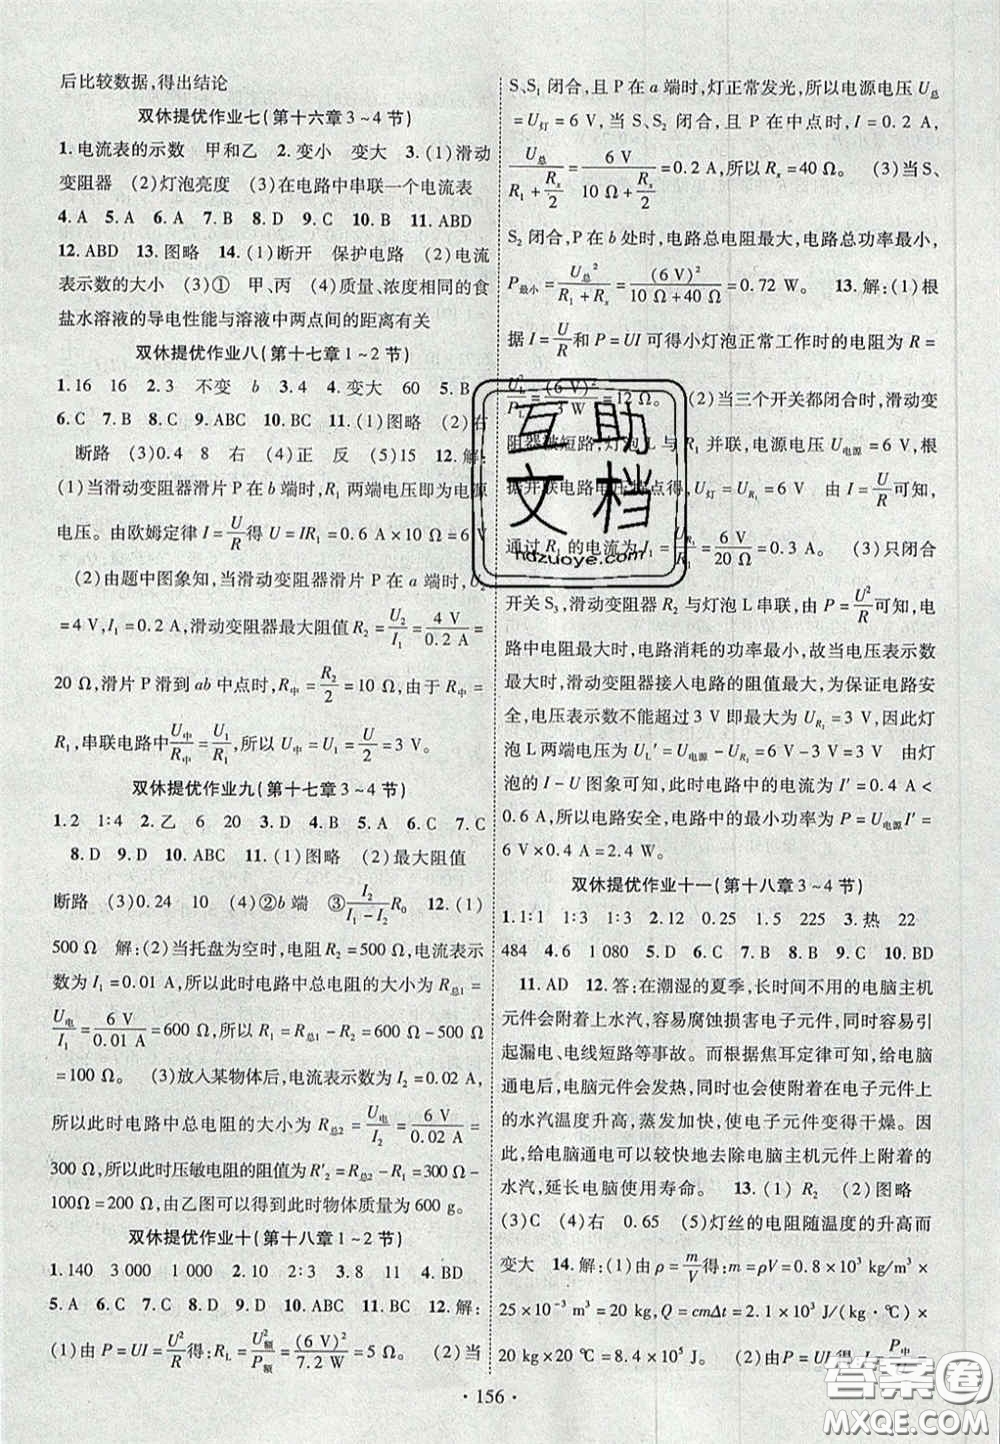 后比较数据,得出结论
双休提优作业七(第十六章3~4节)
1.电流表的示数 甲和乙 2.变小 变大 3.(1)滑动
变阻器 (2)灯泡亮度 (3)在电路中串联一个电流表
4.A 5.A 6.A 7.B 8.D 9.C 10.B 11.ABD
12.ABD 13.图略 14.(1)断开 保护电路 (2)电流
表示数的大小 (3)① 甲、丙 (4)质量、浓度相同的食
盐水溶液的导电性能与溶液中两点间的距离有关
双休提优作业八(第十七章1~2节)
1.16 16 2.3 不变 b 3.4 4.变大 60 5.B
6.C 7.B 8.C 9.ABC 10.BC 11.(1)图略 (2)右
断路 (3)0.4 8 右 (4)正 反 (5)15 12.解:
(1)当滑动变阻器滑片P在b端时,R₁两端电压即为电源
电压。由欧姆定律 I=U/R 得 U=IR₁=0.6 A×10 Ω=6 V
(2)由题中图象知,当滑动变阻器滑片P在a端时,U₂
=4 V,I₁=0.2 A,滑动变阻器最大阻值 R₂=U₂/I₁=4 V/0.2 A=
20 Ω,滑片P滑到ab中点时,R中=R₂/2=10 Ω,由于R中=
R₁,串联电路中U中/R中=U₁/R₁,所以U中=U₁=U/2=3 V。
双休提优作业九(第十七章3~4节)
1.2 1:4 2.乙 6 20 3.D 4.B 5.A 6.C 7.C
8.D 9.D 10.ABC 11.(1)图略 (2)最大阻值
断路 (3)0.24 10 (4)②b端 ③I₂/(I₁-I₂)R₀ 12.(1)
500 Ω 解:(2)当托盘为空时,电阻R₂=500 Ω,电流表示
数为I₁=0.01 A,所以此时电路中总电阻的大小为R总1=
U电/I₁=6 V/0.01 A=600 Ω,所以R₁=R总1-R₂=600 Ω-500 Ω
=100 Ω。 (3)放入某物体后,电流表示数I₂=0.02 A,
所以此时电路中总电阻的大小为R总2=U电/I₂=6 V/0.02 A=
300 Ω,所以此时压敏电阻的阻值R'₂=R总2-R₁=300 Ω-
100Ω=200 Ω,由乙图可以得到此时物体质量为600 g。
双休提优作业十(第十八章1~2节)
1.140 3 000 2.10 2:3 3.8 11 4.BD
5.A 6.C 7.B 8.A 9.C 10.BC 11.BC 12.解:
(1)由P=UI=U²/R得:R_L=U²额/P额=(6 V)²/7.2 W=5 Ω。 (2)当
S、S₁闭合,且P在a端时,灯正常发光,所以电源电压U总
=U灯=6 V,当S、S₂闭合,且P在中点时,I=0.2 A,
U总/(R₁+Rₓ/2)=6 V/(10 Ω+Rₓ/2)=0.2 A,所以Rₓ=40 Ω。 (3)当S、
S₂闭合,P在b处时,电路总电阻最大,电路总功率最小,
P最小=U总²/(R₁+Rₓ)=(6 V)²/(10 Ω+40 Ω)=0.72 W。 13.解:(1)根
据I=U/R和P=UI可得小灯泡正常工作时的电阻为R=
U_L²/P_L=(6 V)²/3 W=12 Ω。 (2)当三个开关都闭合时,滑动变
阻器被短路,灯泡L与R₁并联,电源电压U电源=6 V,根
据并联电路电压特点得,U灯=U_R₁=6 V 由I=U/R可知,
通过R₁的电流为I₁=U_R₁/R₁=6 V/20 Ω=0.3 A。 (3)只闭合
开关S₃,滑动变阻器R₂与灯泡L串联,由P=U²/R可知,电
路中电阻最大时,电路消耗的功率最小,故当电压表示数
最大时,滑动变阻器接入电路的阻值最大,为保证电路安
全,电压表示数不能超过3 V即最大为U_R₂=3 V,因此灯
泡L两端电压为U_L'=U电源-U_R₂=6 V-3 V=3 V 由灯
泡的I-U图象可知,此时电路中的电流为I'=0.4 A<
0.6 A,所以电路安全,电路中的最小功率为P=U电源I'=
6 V×0.4 A=2.4 W。
双休提优作业十一(第十八章3~4节)
1.1:1 1:3 2.12 0.25 1.5 225 3.热 22
484 4.6 1 080 5.D 6.C 7.D 8.C 9.C 10.BD
11.AD 12.答:在潮湿的夏季,长时间不用的电脑主机
元件会附着上水汽,容易腐蚀损害电子元件,同时容易引
起漏电、电线短路等事故。而根据焦耳定律可知,给电脑
通电后,电脑元件会发热,一会儿会使附着在电子元件上
的水汽温度升高,蒸发加快,使电子元件变得干燥。因
此,给电脑通电可以较快地去除电脑主机元件上附着的
水汽,延长电脑使用寿命。 13.(1)R₂ (2)图略
(3)C (4)右 0.65 (5)灯丝的电阻随温度的升高而
变大 14.解:(1)由ρ=m/V得:m=ρV=0.8×10³ kg/m³×
25×10⁻³ m³=20 kg,Q=cmΔt=2.1×10³ J/(kg·℃)×
20 kg×20 ℃=8.4×10⁵ J。 (2)由P=UI得I=P中/U=
· 156 ·
互助文档
hdzuoye.com
答案圈
MXQE.COM